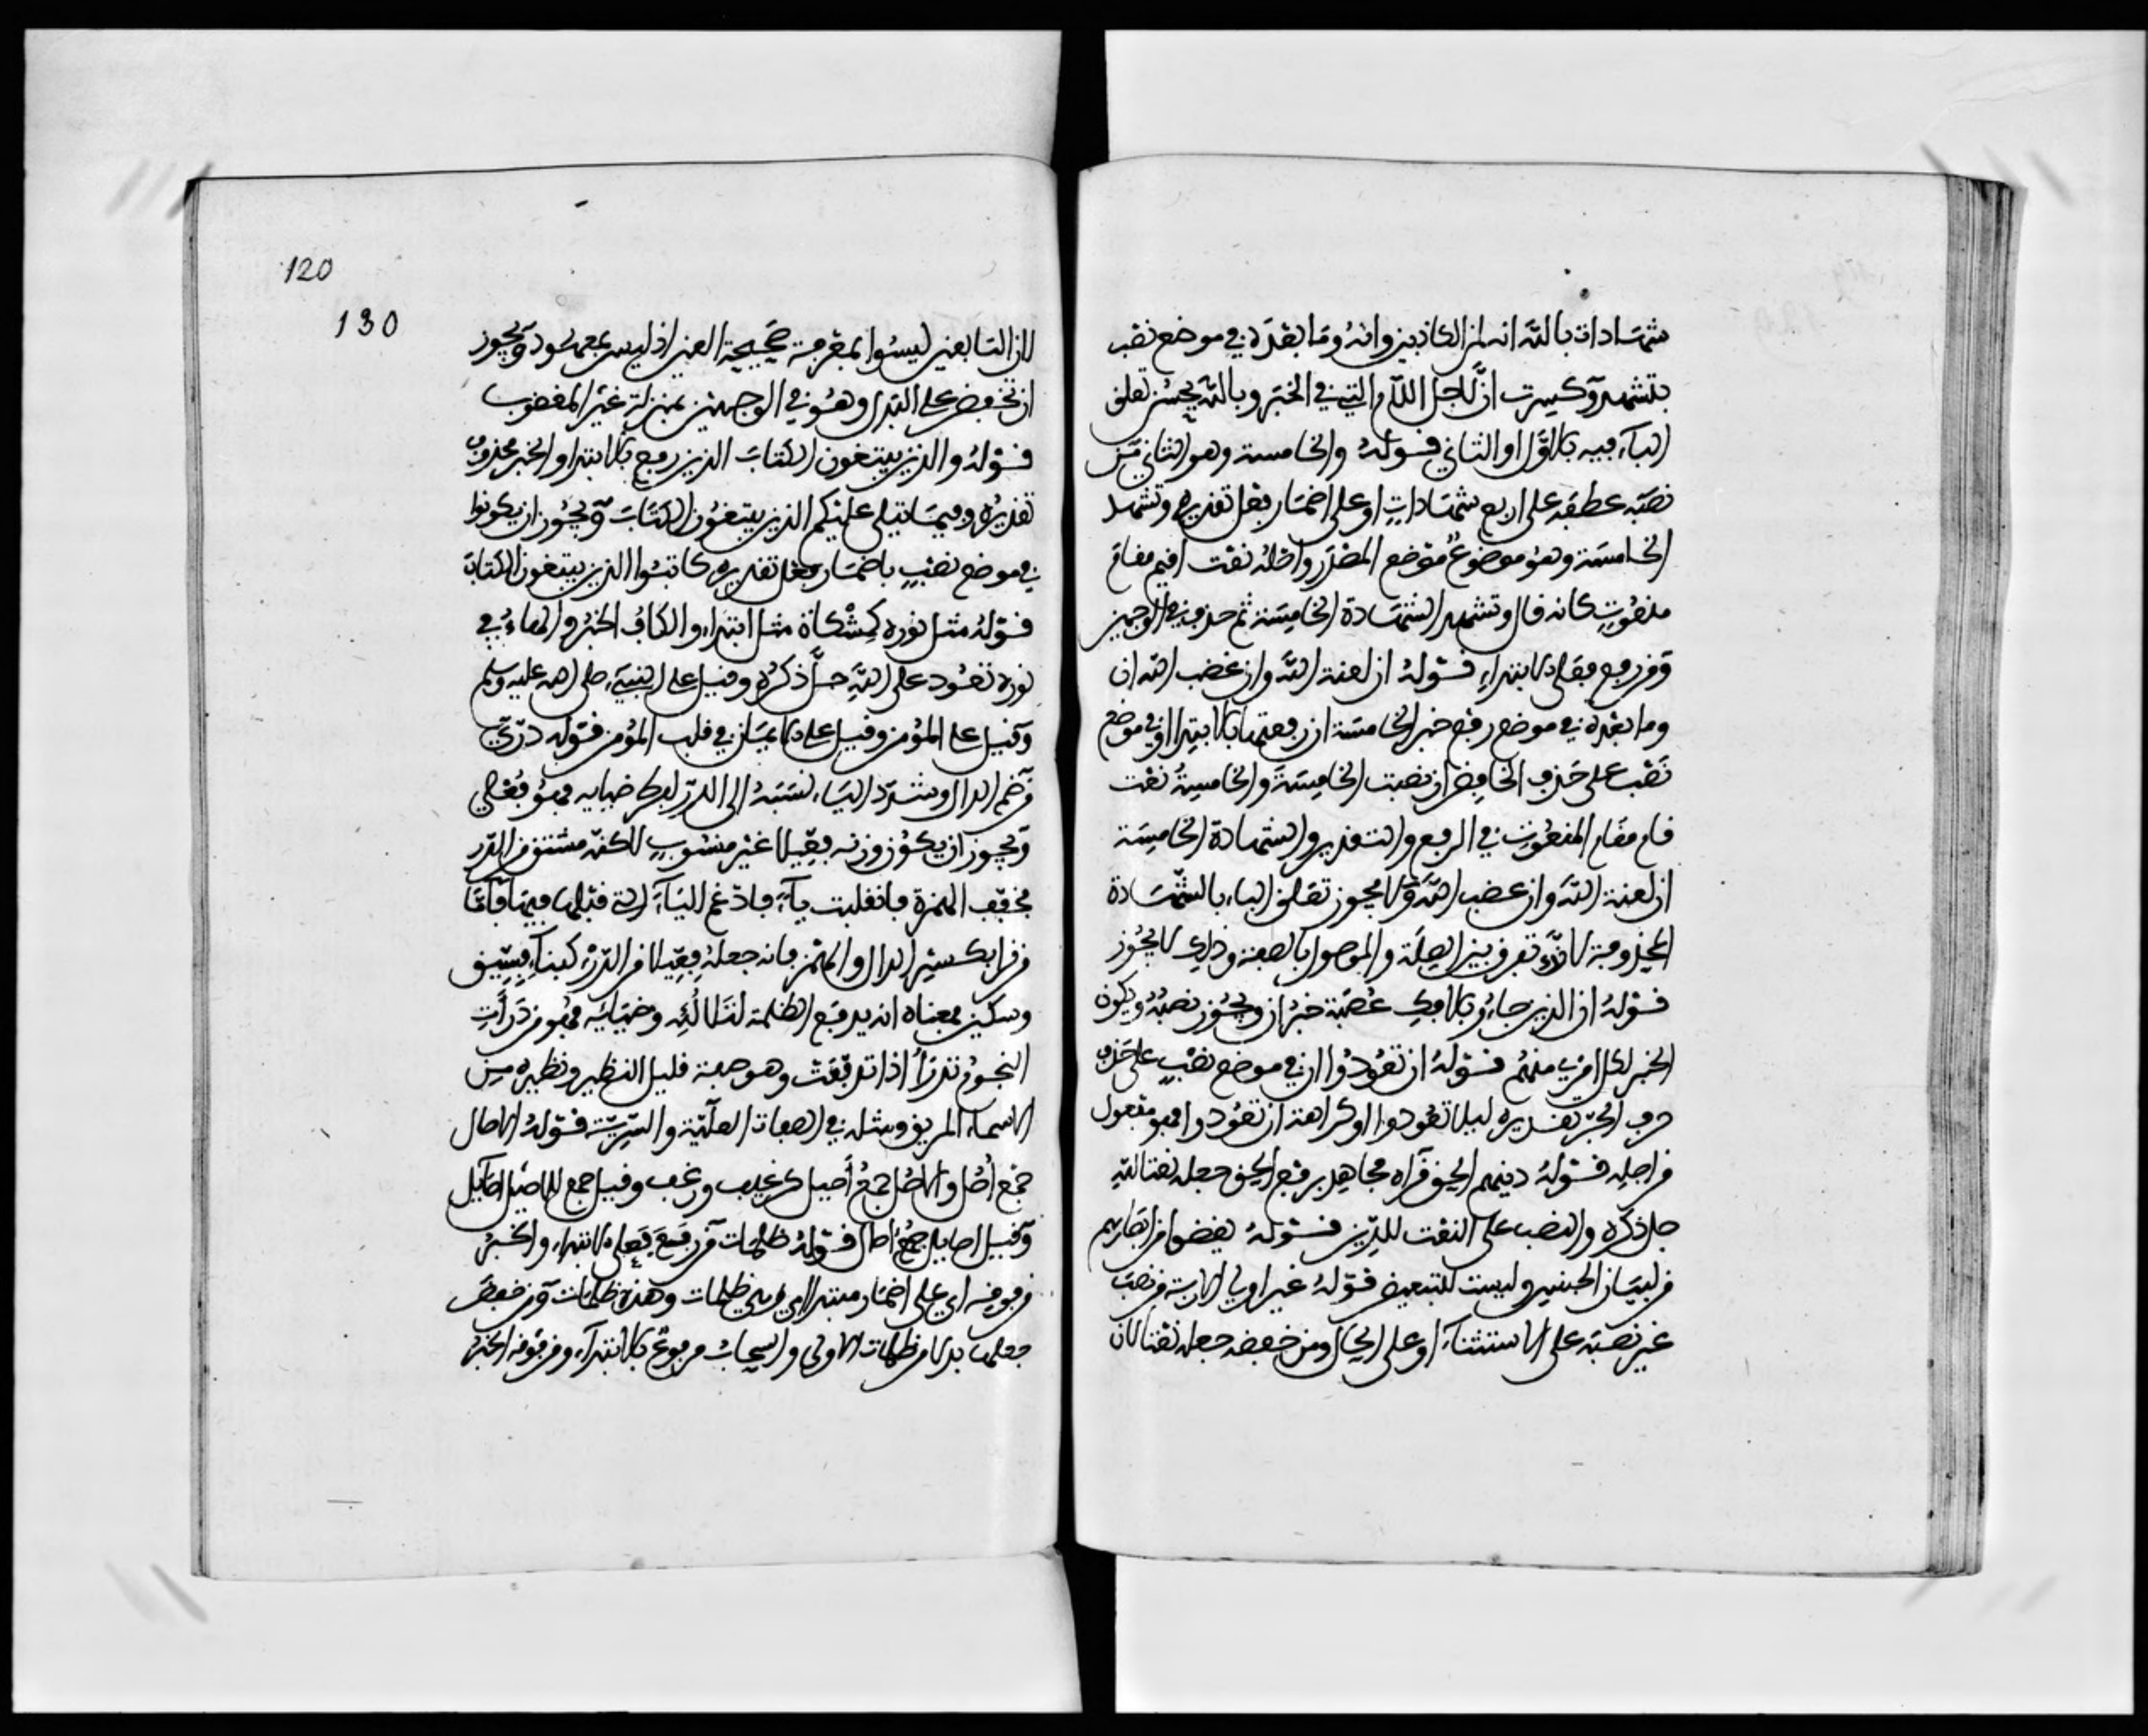 شهادات بالله انه لمن الكاذبين وانه وما بعده في موضع نصب
بتشهد وكسرت ان لاجل اللام التي في الخبر وبالله يحسن تعلق
الباء فيه بالاول او الثاني قوله والخامسة وهو الثاني من
نصبه عطفه على اربع شهادات او على اضمار فعل تقديره وتشهد
الخامسة وهو موضوع موضع المصدر واصله نعت اقيم مقام
منعوت كانه قال وتشهد الشهادة الخامسة ثم حذف في الوجهين
ومن رفع فعلى الابتداء قوله ان لعنة الله وان غضب الله ان
وما بعده في موضع رفع خبر الخامسة ان رفعتها بالابتدا او في موضع
نصب على حذف الخافض ان نصبت الخامسة والخامسة نعت
قام مقام المنعوت في الرفع والتقدير والشهادة الخامسة
ان لعنة الله وان غضب الله ولا يجوز تعلق الباء بالشهادة
المحذوفة لانك تفرق بين الصلة والموصول بالصفة وذلك لا يجوز
قوله ان الذين جاءو بالافك عصبة خبر ان ويجوز نصبه ويكون
الخبر لكل امرئ منهم قوله ان تعودوا ان في موضع نصب على حذف
حرف الجر تقديره ليلا تعودوا او كراهة ان تعودوا فهو مفعول
من اجله قوله دينهم الحق قراه مجاهد برفع الحق جعله نعتا لله
جل ذكره والنصب على النعت للدين قوله يغضوا من ابصارهم
من لبيان الجنس وليست للتبعيض قوله غير اولي الاربة من نصب
غير نصبه على الاستثناء او على الحال ومن خفضه جعله نعتا لان
120
130
لان التابعين ليسوا بمعرفة صحيحة العين اذ ليس بمعهود ويجوز
ان تخفض على البدل وهو في الوجهين بمنزلة غير المغضوب
قوله والذين يبتغون الكتاب الذين رفع بالابتدا والخبر محذوف
تقديره وفيما يتلى عليكم الذين يبتغون الكتاب ويجوز ان يكونوا
في موضع نصب باضمار فعل تقديره كاتبوا الذين يبتغون الكتاب
قوله مثل نوره كمشكاة مثل ابتداء والكاف الخبر والهاء في
نوره تعود على الله جل ذكره وقيل على النبيء صلى الله عليه وسلم
وقيل على المؤمن وقيل على الايمان في قلب المؤمن قوله دري
من ضم الدال وشدد الياء نسبه الى الدر لفرط ضيايه فهو فعلي
ويجوز ان يكون وزنه فعيلا غير منسوب لاكنه مشتق من الدرء
فخفف الهمزة فانقلبت ياء فادغم الياء التي قبلها فيها فاما
من قرا بكسر الدال والهمز فانه جعله فعيلا من الدرء كبناء فسيق
وسكين فمعناه انه يدفع الظلمة لتلالئه وضيايه فهو من درات
النجوم تدرا اذا تدفعت وهو صفة قليل النظير ونظيره من
الاسماء المريق ومثله في الصفات العلية والسرية قوله الاصال
جمع اصل والاصل جمع اصيل كرغيف ورغف وقيل جمع للاصيل اصايل
وقيل اصايل جمع اصال قوله ظلمات من رفع فعلى الابتداء والخبر
من فوقه او على اضمار مبتدا اي هي ظلمات وهذه ظلمات ومن خفض
جعلها بدلا من ظلمات الاولى والسحاب مرفوع بالابتداء ومن فوقه الخبر